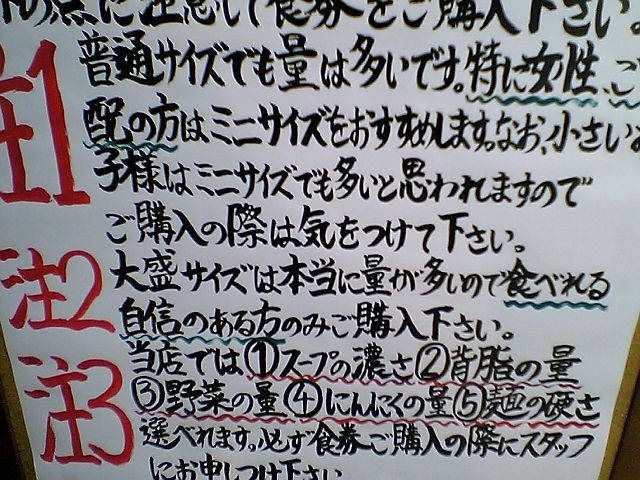 の点に注意して食券をご購入下さい。
注1 普通サイズでも量は多いです。特に女性、ご
配の方はミニサイズをおすすめします。なお、小さいお
子様はミニサイズでも多いと思われますので
ご購入の際は気をつけて下さい。
注2 大盛サイズは本当に量が多いので食べれる
自信のある方のみご購入下さい。
注3 当店では①スープの濃さ②背脂の量
③野菜の量④にんにくの量⑤麺の硬さ
選べれます。必ず食券ご購入の際にスタッフ
にお申しつけ下さい